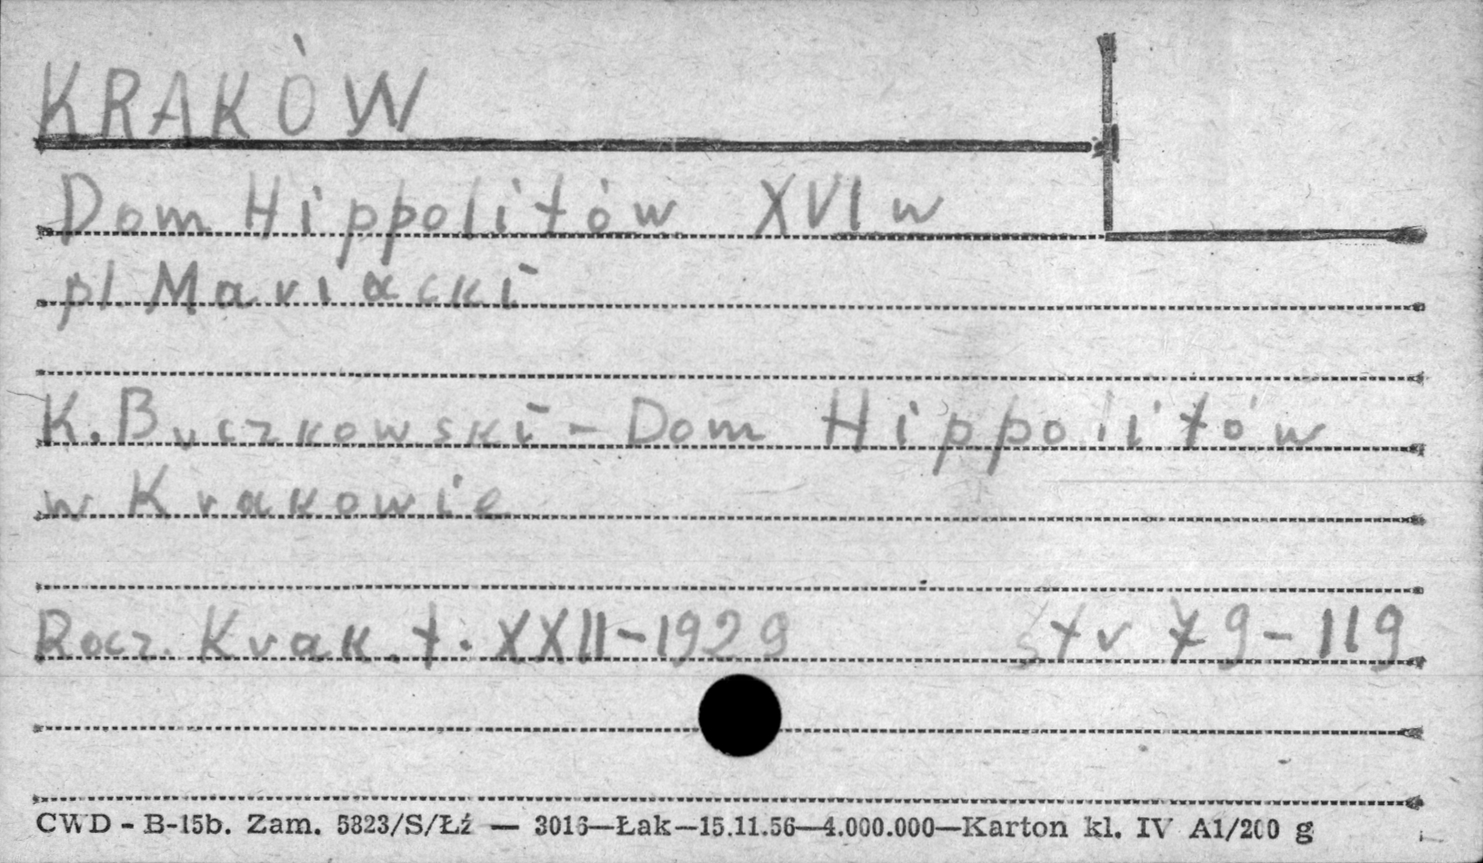 KRAKÓW
Dom Hippolitów XVI w
pl. Mariacki
K. Buczkowski - Dom Hippolitów
w Krakowie
Rocz. Krak. t. XXII - 1929 str 79-119
CWD - B-15b. Zam. 5823/S/Łź — 3016—Łak—15.11.56—4.000.000—Karton kl. IV A1/200 g